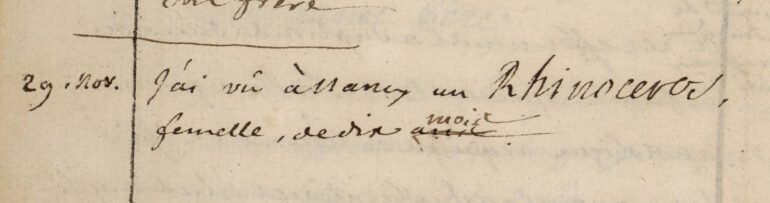 29. Nov. J'ai vû à Nancy un Rhinoceros,
femelle, de dix ans mois